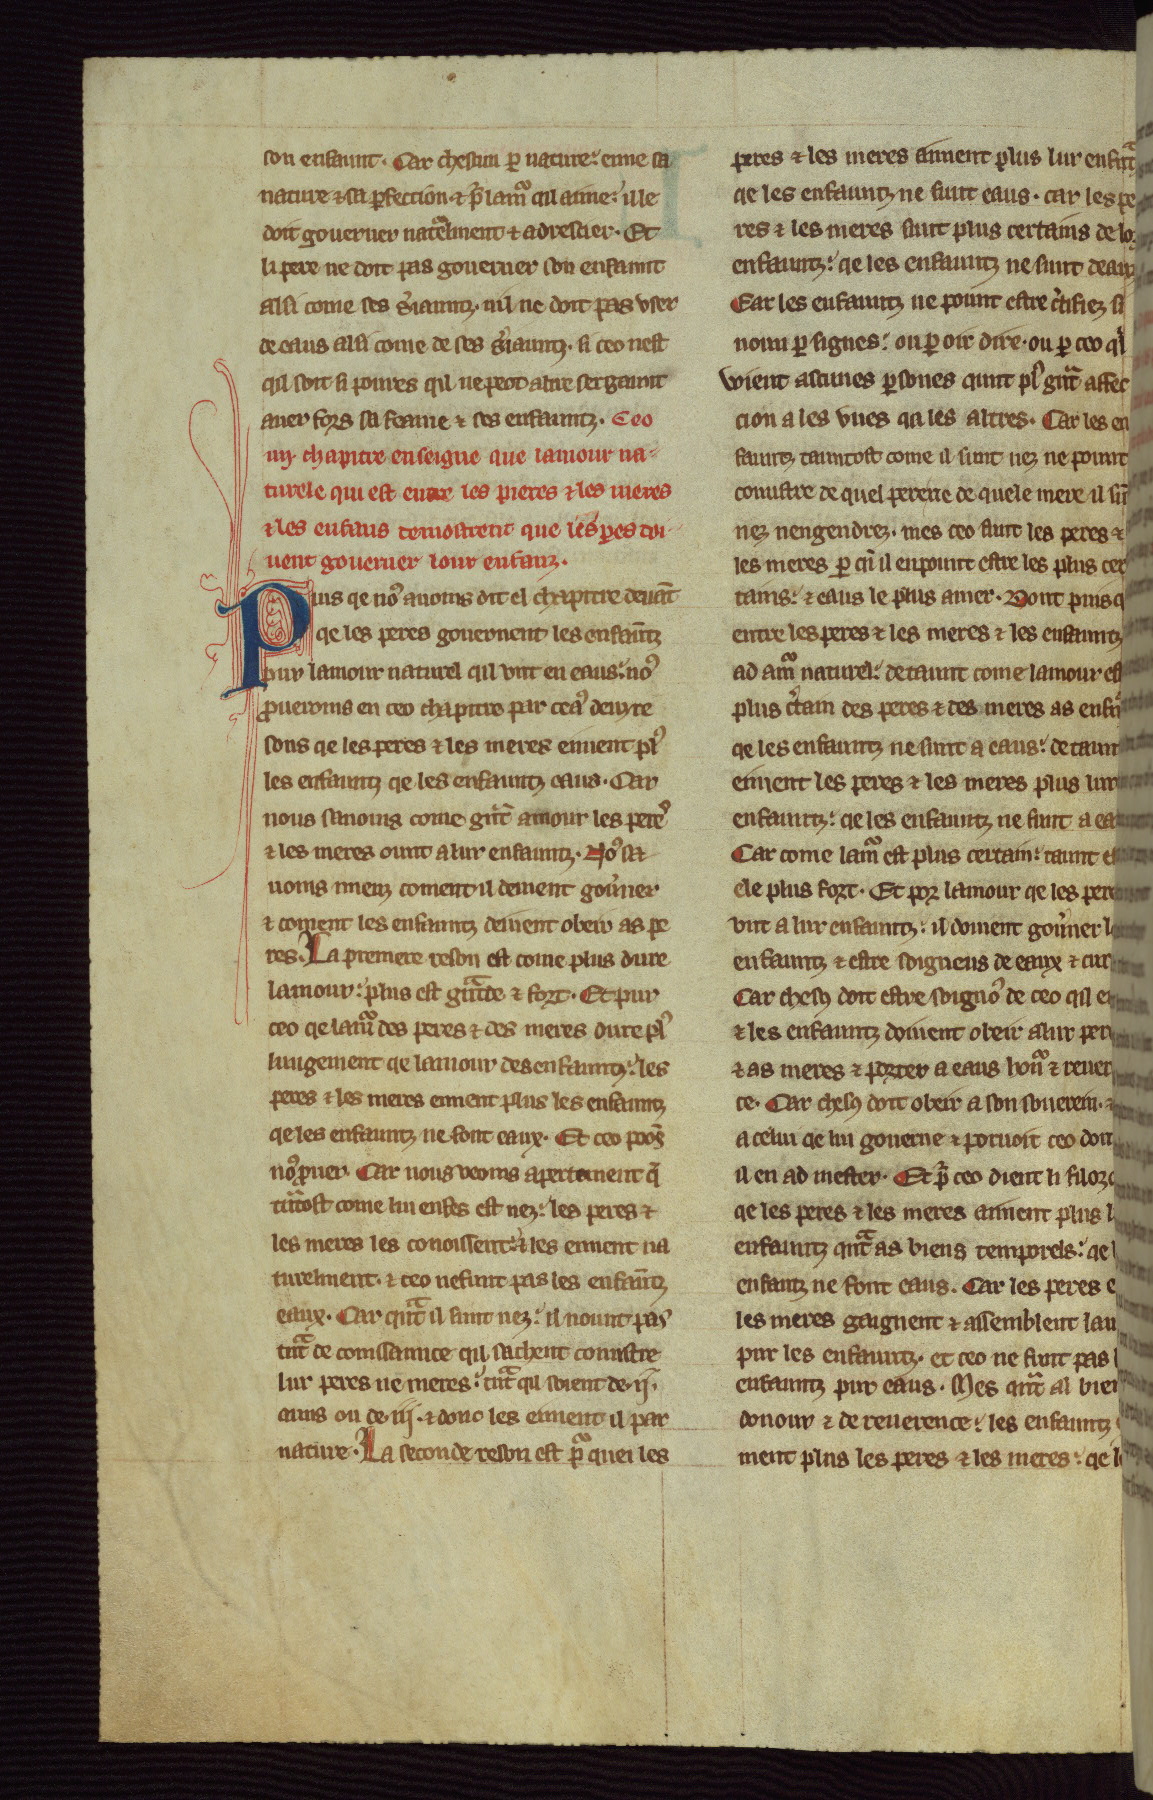 son enfaunt. Car chescun ꝑ nature: eime sa
nature ⁊ sa ꝑfection. ⁊ pͬ lamoͬ qil aime: il le
doit gouerner natͣelment ⁊ adrescier. Et
li pere ne doit pas gouerner son enfaunt
alsi come ses sͥiauntz. nil ne doit pas vser
de eaus alsi come de ses sͥiauntz. si ceo nest
qil soit si poures qil ne peot altre sergaunt
auer fors sa feame ⁊ ses enfauntz. Ceo
iiij chapitre enseigne que lamour na-
turele qui est entre les pieres ⁊ les meres
⁊ les enfans demostrent que les ꝑes doi-
uent gouerner lour enfanz.
Puis qe noꝰ auoms dit el chapitre deuāt
qe les peres gouernent les enfaūtz
pur lamour naturel qil vnt en eaus: noꝰ
ꝓueroms en ceo chapitre par
sons qe les peres ⁊ les meres eiment plꝰ
les enfauntz qe les enfauntz eaus. Car
nous sauoms come gnͣt amour les pereꝰ
⁊ les meres ount a lur enfauntz. Noꝰ sa-
uoms mieuz coment il deiuent gouͥner
⁊ coment les enfauntz deiuent obeir as pe
res. La premere reson est come plus dure
lamour: plus est gͣnde ⁊ fort. Et pur
ceo qe lamͬ des peres ⁊ des meres dure plꝰ
lungement qe lamour des enfauntz: les
peres ⁊ les meres eiment plus les enfauntz
qe les enfauntz ne font eaux. Et ceo pooꝭ
noꝰ ꝓuer. Car nous veoms apertement q̄
tͣntost come lui enfes est nez: les peres ⁊
les meres les conoissent: ⁊ les eiment na
turelment. ⁊ ceo nefunt pas les enfaūtz
eaux. Car qnͣt il sunt nez: il nount pas
tnͣt de conissaunce qil sachent conustre
lur peres ne meres: tnͣt qil soient de .ij.
auns ou de .iij. ⁊ donc les eiment il par
nature. La seconde reson est pͬ quei les
peres ⁊ les meres aiment plus lur enfntͣ
qe les enfauntz ne funt eaus. car les pe
res ⁊ les meres sunt plus certains de lo
enfauntz: qe les enfauntz ne sunt deaux
Car les enfauntz ne pount estre cͥtifiez si
nonn ꝑ signes: ou ꝑ oir dire. ou ꝑ ceo ql
voient ascunes ꝑsones qunt plꝰ gnͣt affec
cion a les vnes qa les altres. Car les en
fauntz tauntost come il sunt nez ne pount
conustre de quel pere ne de quele mere il sūt
nez nengendrez. mes ceo sunt les peres ⁊
les meres ꝑ qͥ il enpount estre les plus cer
tains: ⁊ eaus le plus amer. Dont puis q
entre les peres ⁊ les meres ⁊ les enfauntz
ad amoͬ naturel: de taunt come lamour est
plus cͥtain des peres ⁊ des meres as enfn
qe les enfauntz ne sunt a eaus: de taunt
eiment les peres ⁊ les meres plus lur
enfauntz: qe les enfauntz ne funt a ea
Car come lamoͬ est plus certain: taunt e
ele plus fort. Et por lamour qe les pere
vnt a lur enfauntz: il doiuent gouͥner l
enfauntz ⁊ estre soigneus de eaux ⁊ cur
Car chesꝯ doit estre soignoꝰ de ceo qil e
⁊ les enfauntz doiuent obeir a lur pere
⁊ as meres ⁊ porter a eaus honoͬ ⁊ reuer
ce. Car chesꝯ doit obeir a son souerein. ⁊
a celui qe lui gouerne ⁊ poruoit ceo dont
il en ad mester. Et pͬ ceo dient li filozo
qe les peres ⁊ les meres aiment plus l
enfauntz qntͣ as biens temporels: qe l
enfantz ne font eaus. Car les peres e
les meres gaignent ⁊ assemblent lau
pur les enfauntz. et ceo ne funt pas l
enfauntz pur eaus. Mes qntͣ al bien
donour ⁊ de reuerence: les enfauntz
ment plus les peres ⁊ les meres: qe l